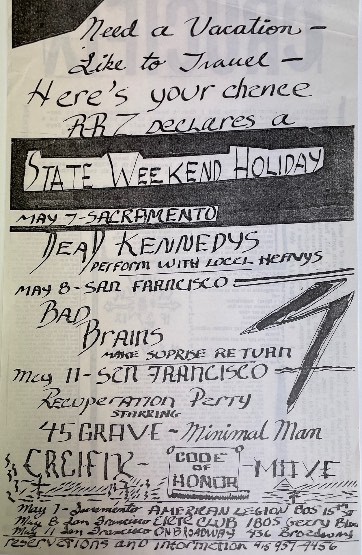 Need a Vacation -
Like to Travel -
Here's your chence
RR7 Declares a
STATE WEEKEND HOLIDAY
MAY 7-SACRAMENTO
DEAD KENNEDYS
PERFORM WITH LOCEL HEAVYS
MAY 8-SAN FARNCISCO
BAD
BRAINS
MAKE SOPRISE RETURN
May 11-SCN FRANCISCO
Recuperation Perty
STARRING
45 GRAVE - Minimal Man
CRCIFIX - CODE OF HONOR - MAVE
May 7- Sacramento AMERICAN LEGION BOS 15th ST
May 8 San Francisco ELITE CLUB 1805 Geery Blvd
May 11 San Francisco ON BROADWAY 436 Broadway
reservetions and information